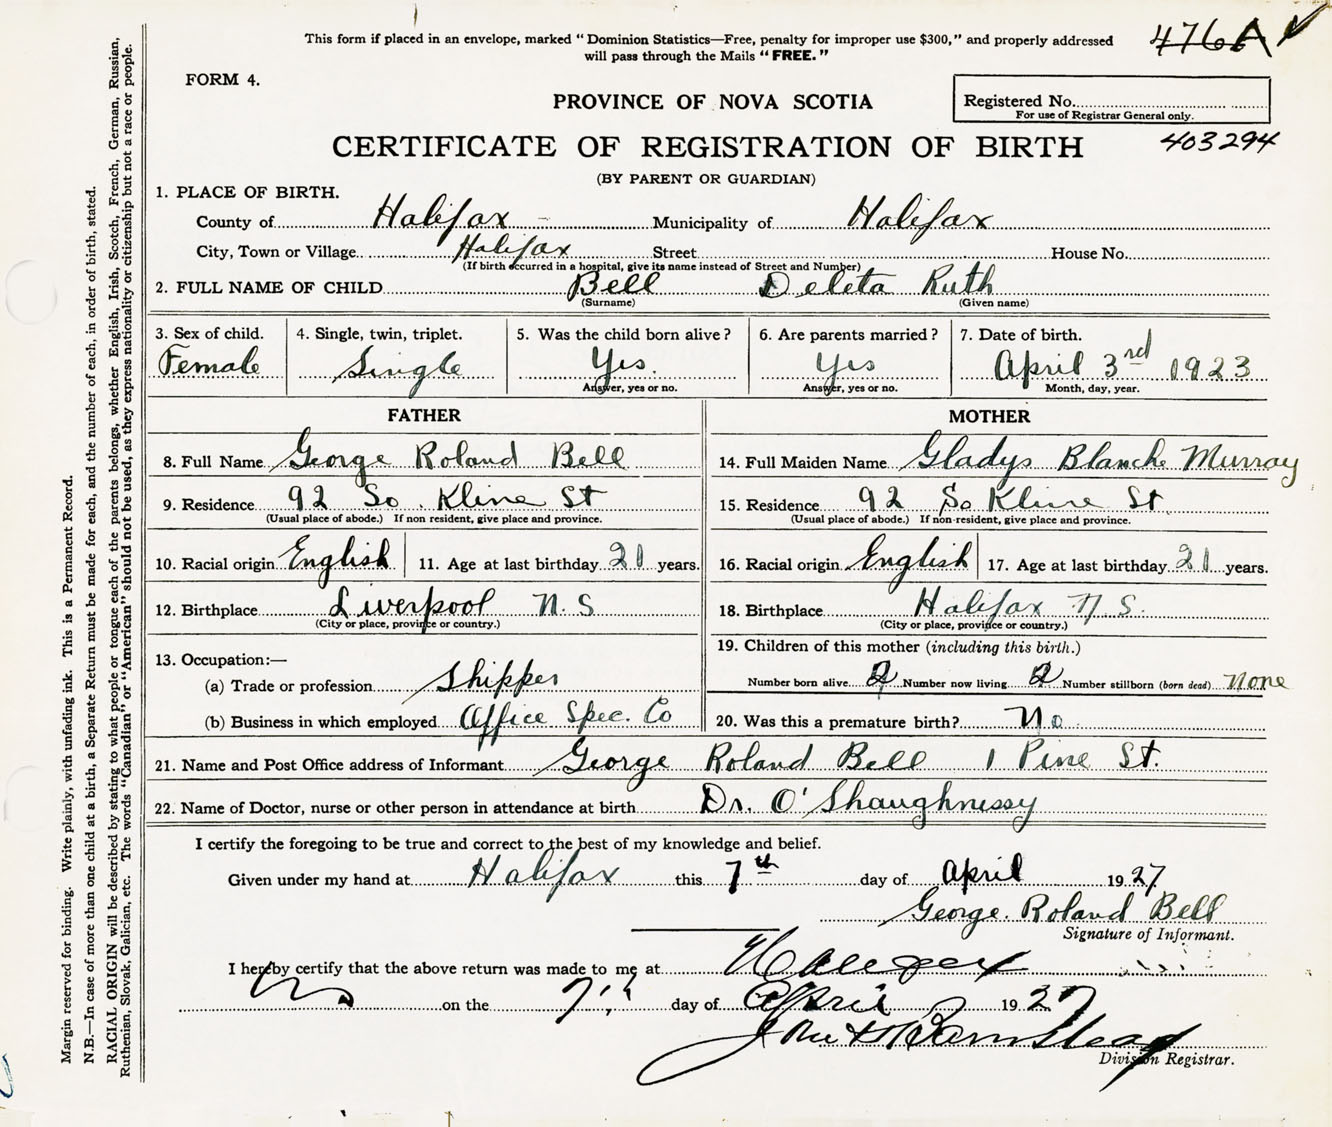 This form if placed in an envelope, marked "Dominion Statistics—Free, penalty for improper use $300," and properly addressed
will pass through the Mails "FREE."
476A
FORM 4.
PROVINCE OF NOVA SCOTIA
Registered No.
For use of Registrar General only.
CERTIFICATE OF REGISTRATION OF BIRTH
403294
(BY PARENT OR GUARDIAN)
1. PLACE OF BIRTH.
County of Halifax Municipality of Halifax
City, Town or Village Halifax Street House No.
(If birth occurred in a hospital, give its name instead of Street and Number)
2. FULL NAME OF CHILD Bell Deleta Ruth
(Surname) (Given name)
3. Sex of child. 4. Single, twin, triplet. 5. Was the child born alive? 6. Are parents married? 7. Date of birth.
Female Single Yes. Yes April 3rd 1923
Answer, yes or no. Answer, yes or no. Month, day, year.
FATHER MOTHER
8. Full Name George Roland Bell 14. Full Maiden Name Gladys Blanche Murray
9. Residence 92 So. Kline St 15. Residence 92 So Kline St
(Usual place of abode.) If non resident, give place and province. (Usual place of abode.) If non-resident, give place and province.
10. Racial origin English 11. Age at last birthday 21 years. 16. Racial origin English 17. Age at last birthday 21 years.
12. Birthplace Liverpool N.S 18. Birthplace Halifax N.S.
(City or place, province or country.) (City or place, province or country.)
13. Occupation:— 19. Children of this mother (including this birth.)
(a) Trade or profession Shipper Number born alive 2 Number now living 2 Number stillborn (born dead) None
(b) Business in which employed Office Spec. Co 20. Was this a premature birth? No
21. Name and Post Office address of Informant George Roland Bell 1 Pine St.
22. Name of Doctor, nurse or other person in attendance at birth Dr. O'Shaughnessy
I certify the foregoing to be true and correct to the best of my knowledge and belief.
Given under my hand at Halifax this 7th day of April 1927
George Roland Bell
Signature of Informant.
I hereby certify that the above return was made to me at Halifax
on the 7 day of April 1927
Division Registrar.
Margin reserved for binding. Write plainly, with unfading ink. This is a Permanent Record.
N.B.—In case of more than one child at a birth, a Separate Return must be made for each, and the number of each, in order of birth, stated.
RACIAL ORIGIN will be described by stating to what people or tongue each of the parents belongs, whether English, Irish, Scotch, French, German, Russian,
Ruthenian, Slovak, Galician, etc. The words "Canadian" or "American" should not be used, as they express nationality or citizenship but not a race or people.